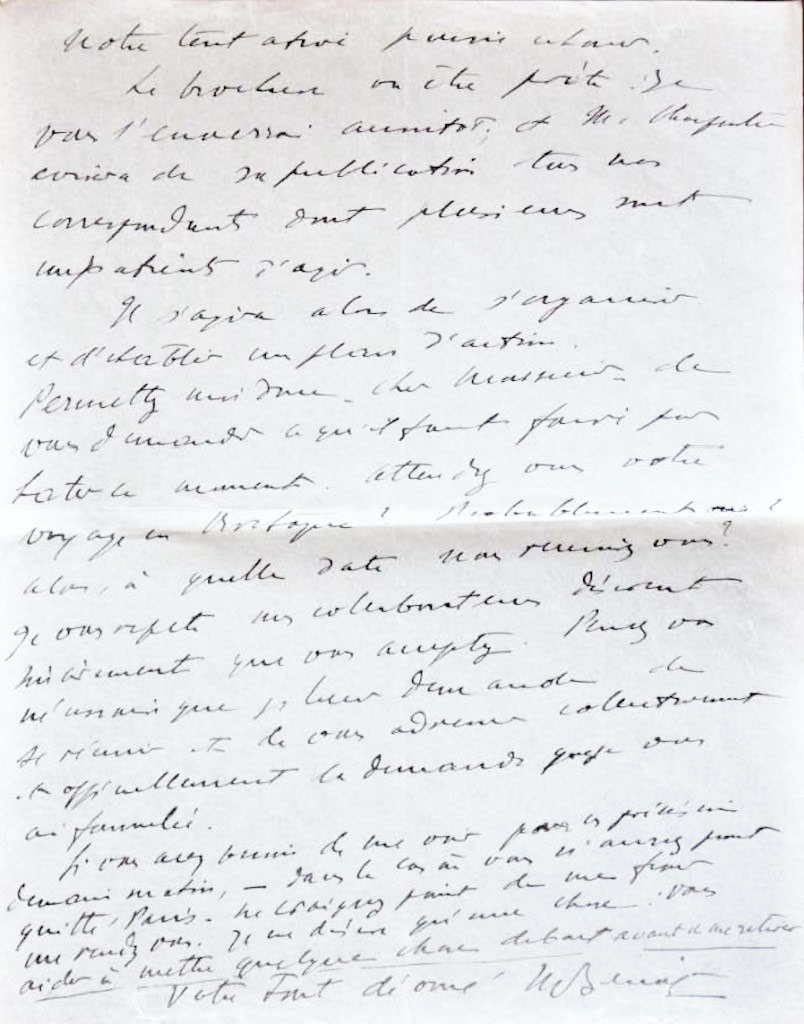 Notre tout
La brochure va être prête. Je
vous l'enverrai aussitôt, et M. Charpentier
avisera de sa publication tous nos
correspondants dont plusieurs sont
impatients d'agir.
Il s'agira alors de s'organiser
et d'établir un plan d'action.
Permettez moi donc, cher Monsieur, de
vous demander ce qu'il faut faire pour
hâter ce moment. Attendez vous votre
voyage en Bretagne ? Probablement oui ?
alors, à quelle date nous reviendrez vous ?
Je vous répète nos collaborateurs désirent
sincèrement que vous acceptiez. Pensez vous
nécessaire que je leur demande de
se réunir et de vous adresser collectivement
et officiellement la demande que je vous
ai formulée.
Si vous avez besoin de me voir pour ces précisions
demain matin, – dans le cas où vous n'auriez point
quitté Paris – ne craignez point de me fixer
un rendez vous. Je ne désire qu'une chose : vous
aider à mettre quelque chose debout avant de me retirer
Votre tout dévoué